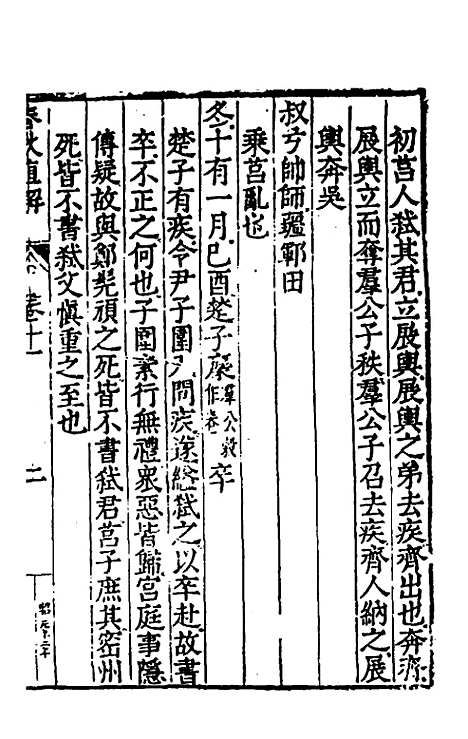 初莒人弑其君立展輿展輿之弟去疾齊出也奔齊
展輿立而奪羣公子秩羣公子召去疾齊人納之展
輿奔吳
叔弓帥師疆鄆田
乘莒亂也
冬十有一月己酉楚子麇公穀作卷卒
楚子有疾令尹子圍入問疾遂縊弑之以卒赴故書
卒不正之何也子圍素行無禮衆惡皆歸宮庭事隱
傳疑故與鄭髠頑之死皆不書弑君莒子庶其密州
死皆不書弑父慎重之至也
春秋直解 卷十一 二
昭 元年